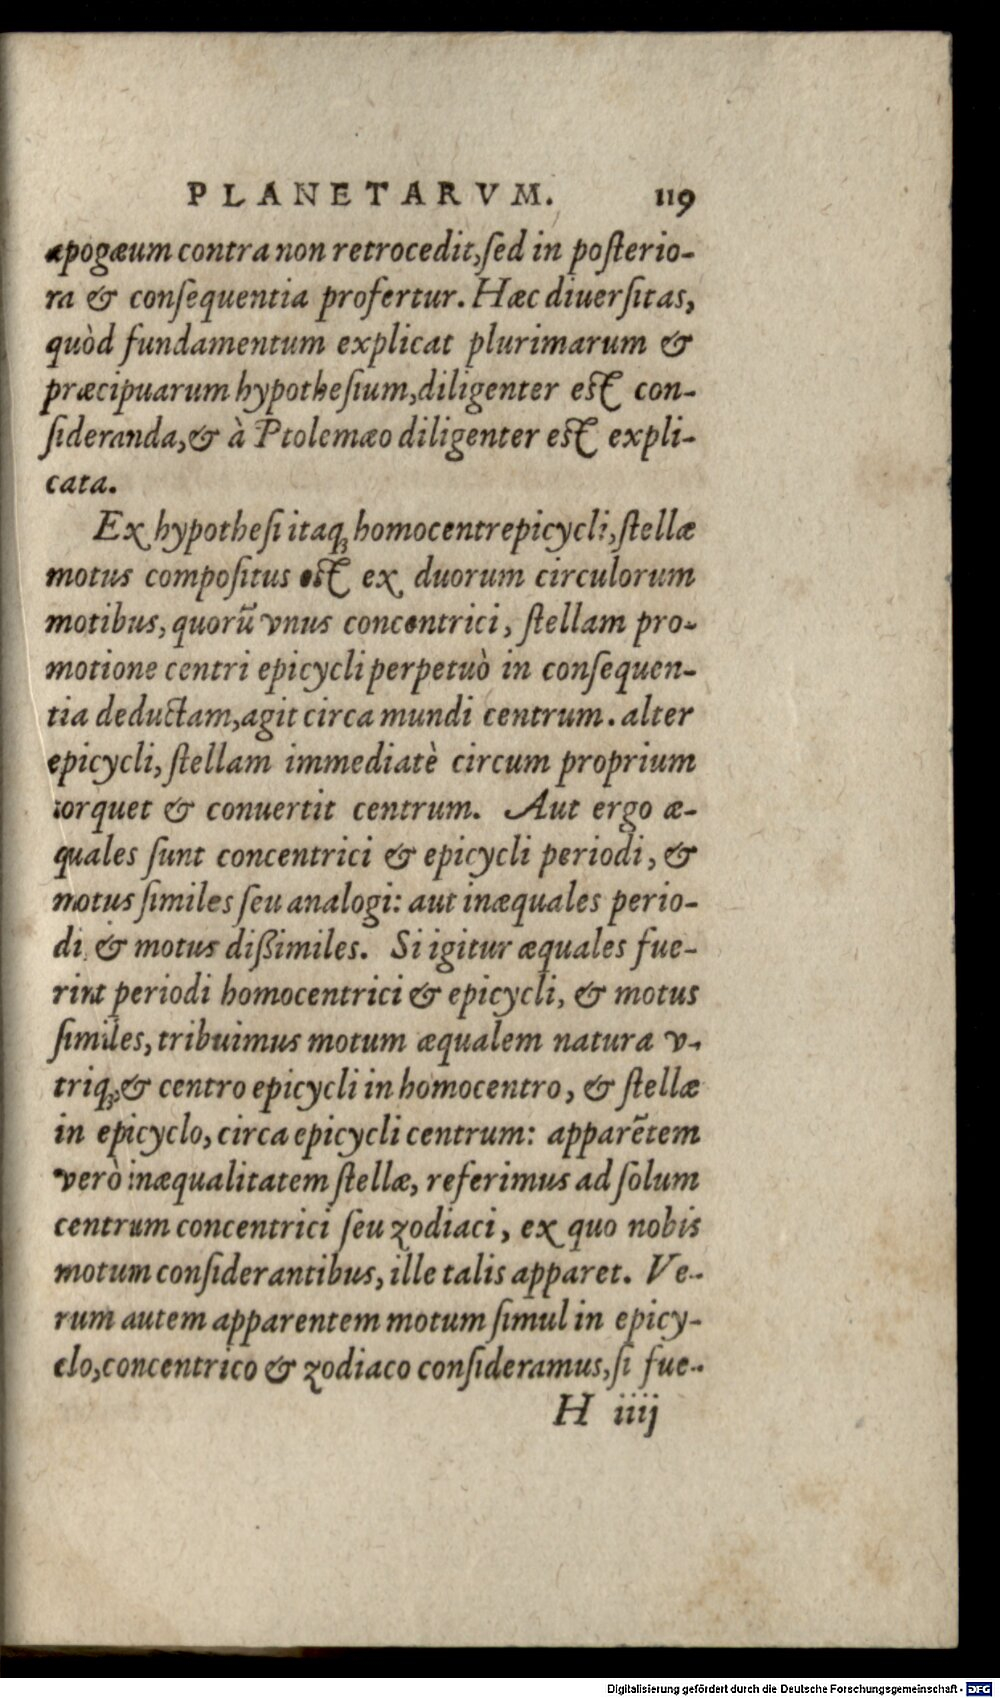 PLANETARVM. 119
apogæum contra non retrocedit, sed in posterio-
ra & consequentia profertur. Hæc diuersitas,
quòd fundamentum explicat plurimarum &
præcipuarum hypothesium, diligenter est con-
sideranda, & à Ptolemæo diligenter est expli-
cata.
Ex hypothesi itaq; homocentrepicycli, stellæ
motus compositus est ex duorum circulorum
motibus, quorũ vnus concentrici, stellam pro-
motione centri epicycli perpetuò in consequen-
tia deductam, agit circa mundi centrum. alter
epicycli, stellam immediatè circum proprium
torquet & conuertit centrum. Aut ergo æ-
quales sunt concentrici & epicycli periodi, &
motus similes seu analogi: aut inæquales perio-
di & motus dißimiles. Si igitur æquales fue-
rint periodi homocentrici & epicycli, & motus
similes, tribuimus motum æqualem natura v-
triq; & centro epicycli in homocentro, & stellæ
in epicyclo, circa epicycli centrum: apparẽtem
verò inæqualitatem stellæ, referimus ad solum
centrum concentrici seu zodiaci, ex quo nobis
motum considerantibus, ille talis apparet. Ve-
rum autem apparentem motum simul in epicy-
clo, concentrico & zodiaco consideramus, si fue-
H iiij
Digitalisierung gefördert durch die Deutsche Forschungsgemeinschaft - DFG